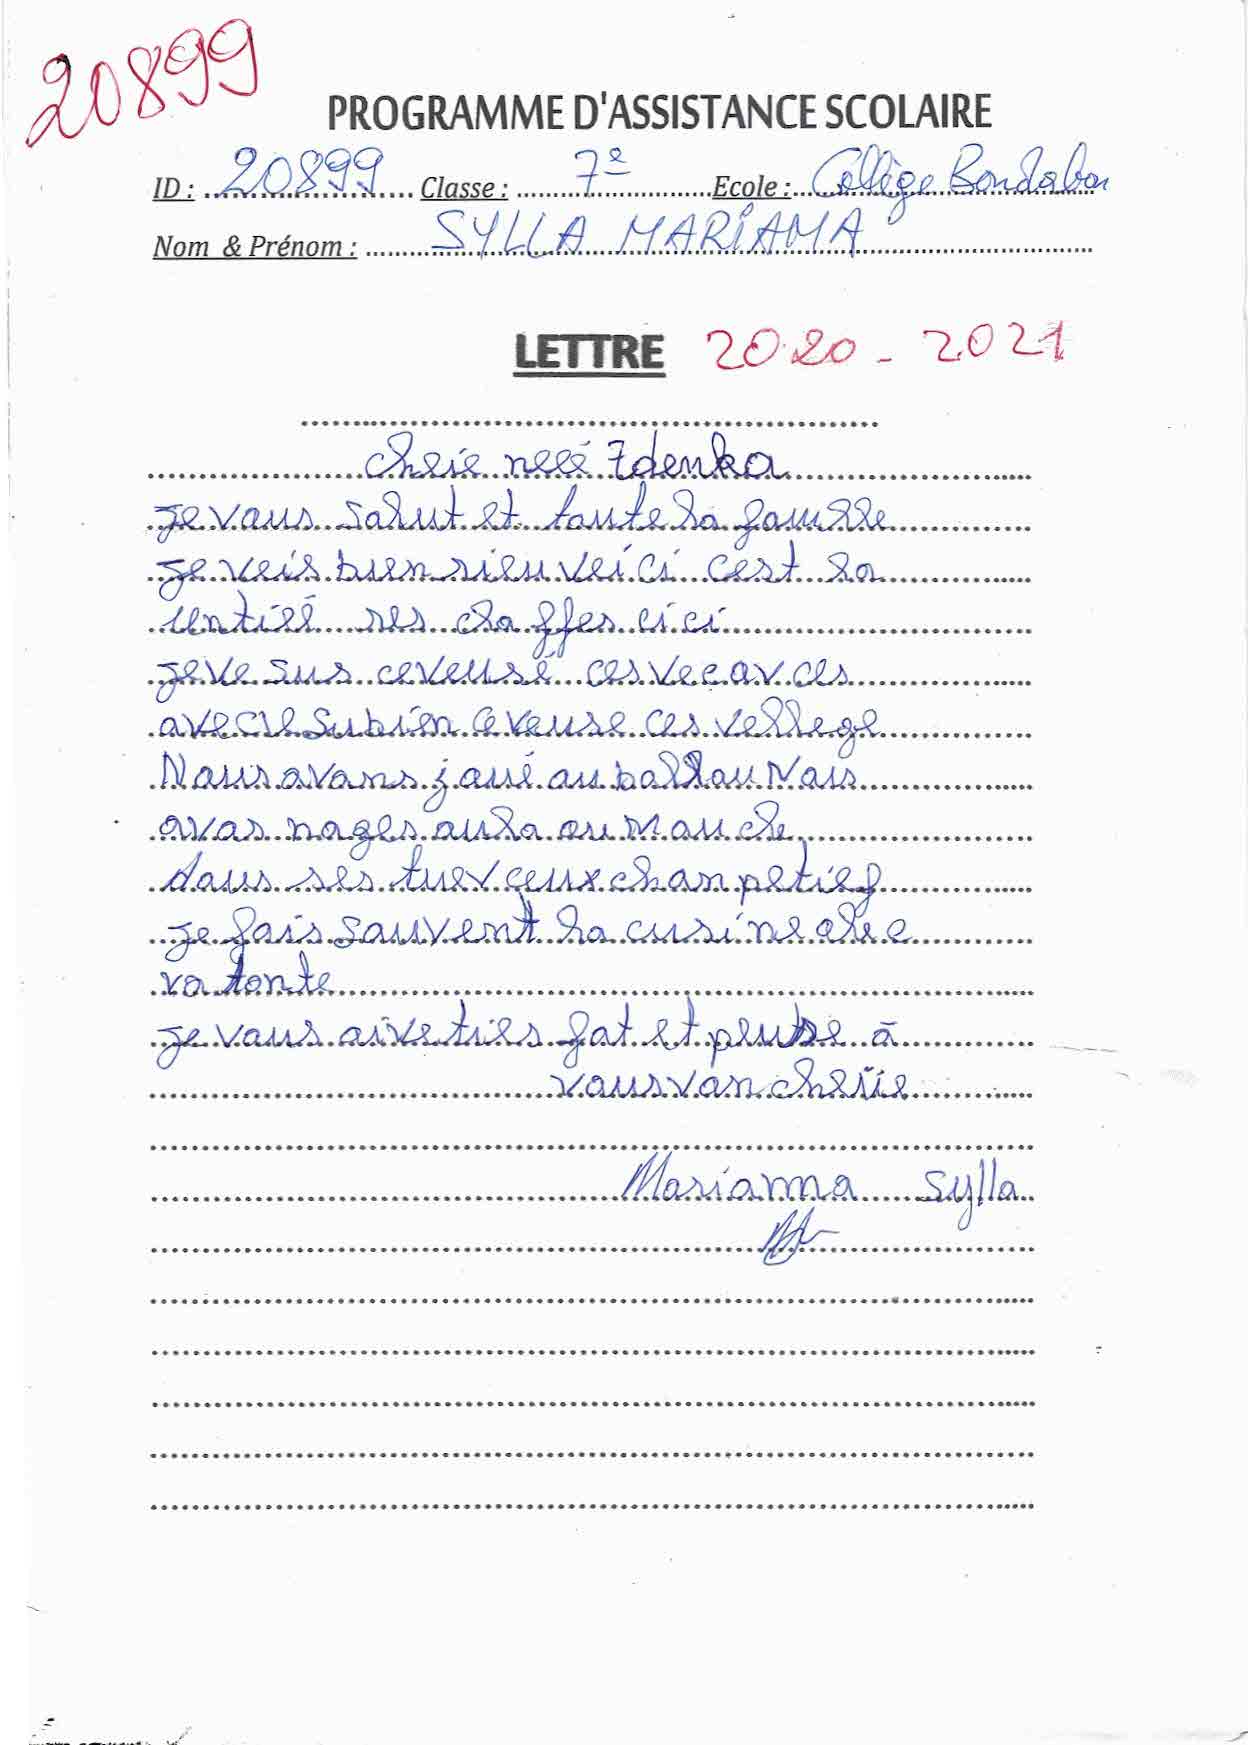 20899
PROGRAMME D'ASSISTANCE SCOLAIRE
ID : 20899 Classe : 7e Ecole : Collège Bondabon
Nom & Prénom : SYLLA MARIAMA
LETTRE 2020 - 2021
Zdenka
je vous salut et toute la famille
je veis bien rieu vei ici c'est la
les ici
je ve sus ceveusé ces vecavces
bien ceveuse ces vellege
Nous avons joué au ballou Nous
avas nages au la ou Mau che
dans les champetief
je fais souvent la cusine chec
va tante
je vous aive ties fat et peuse à
vous van cheiie
Marianna Sylla